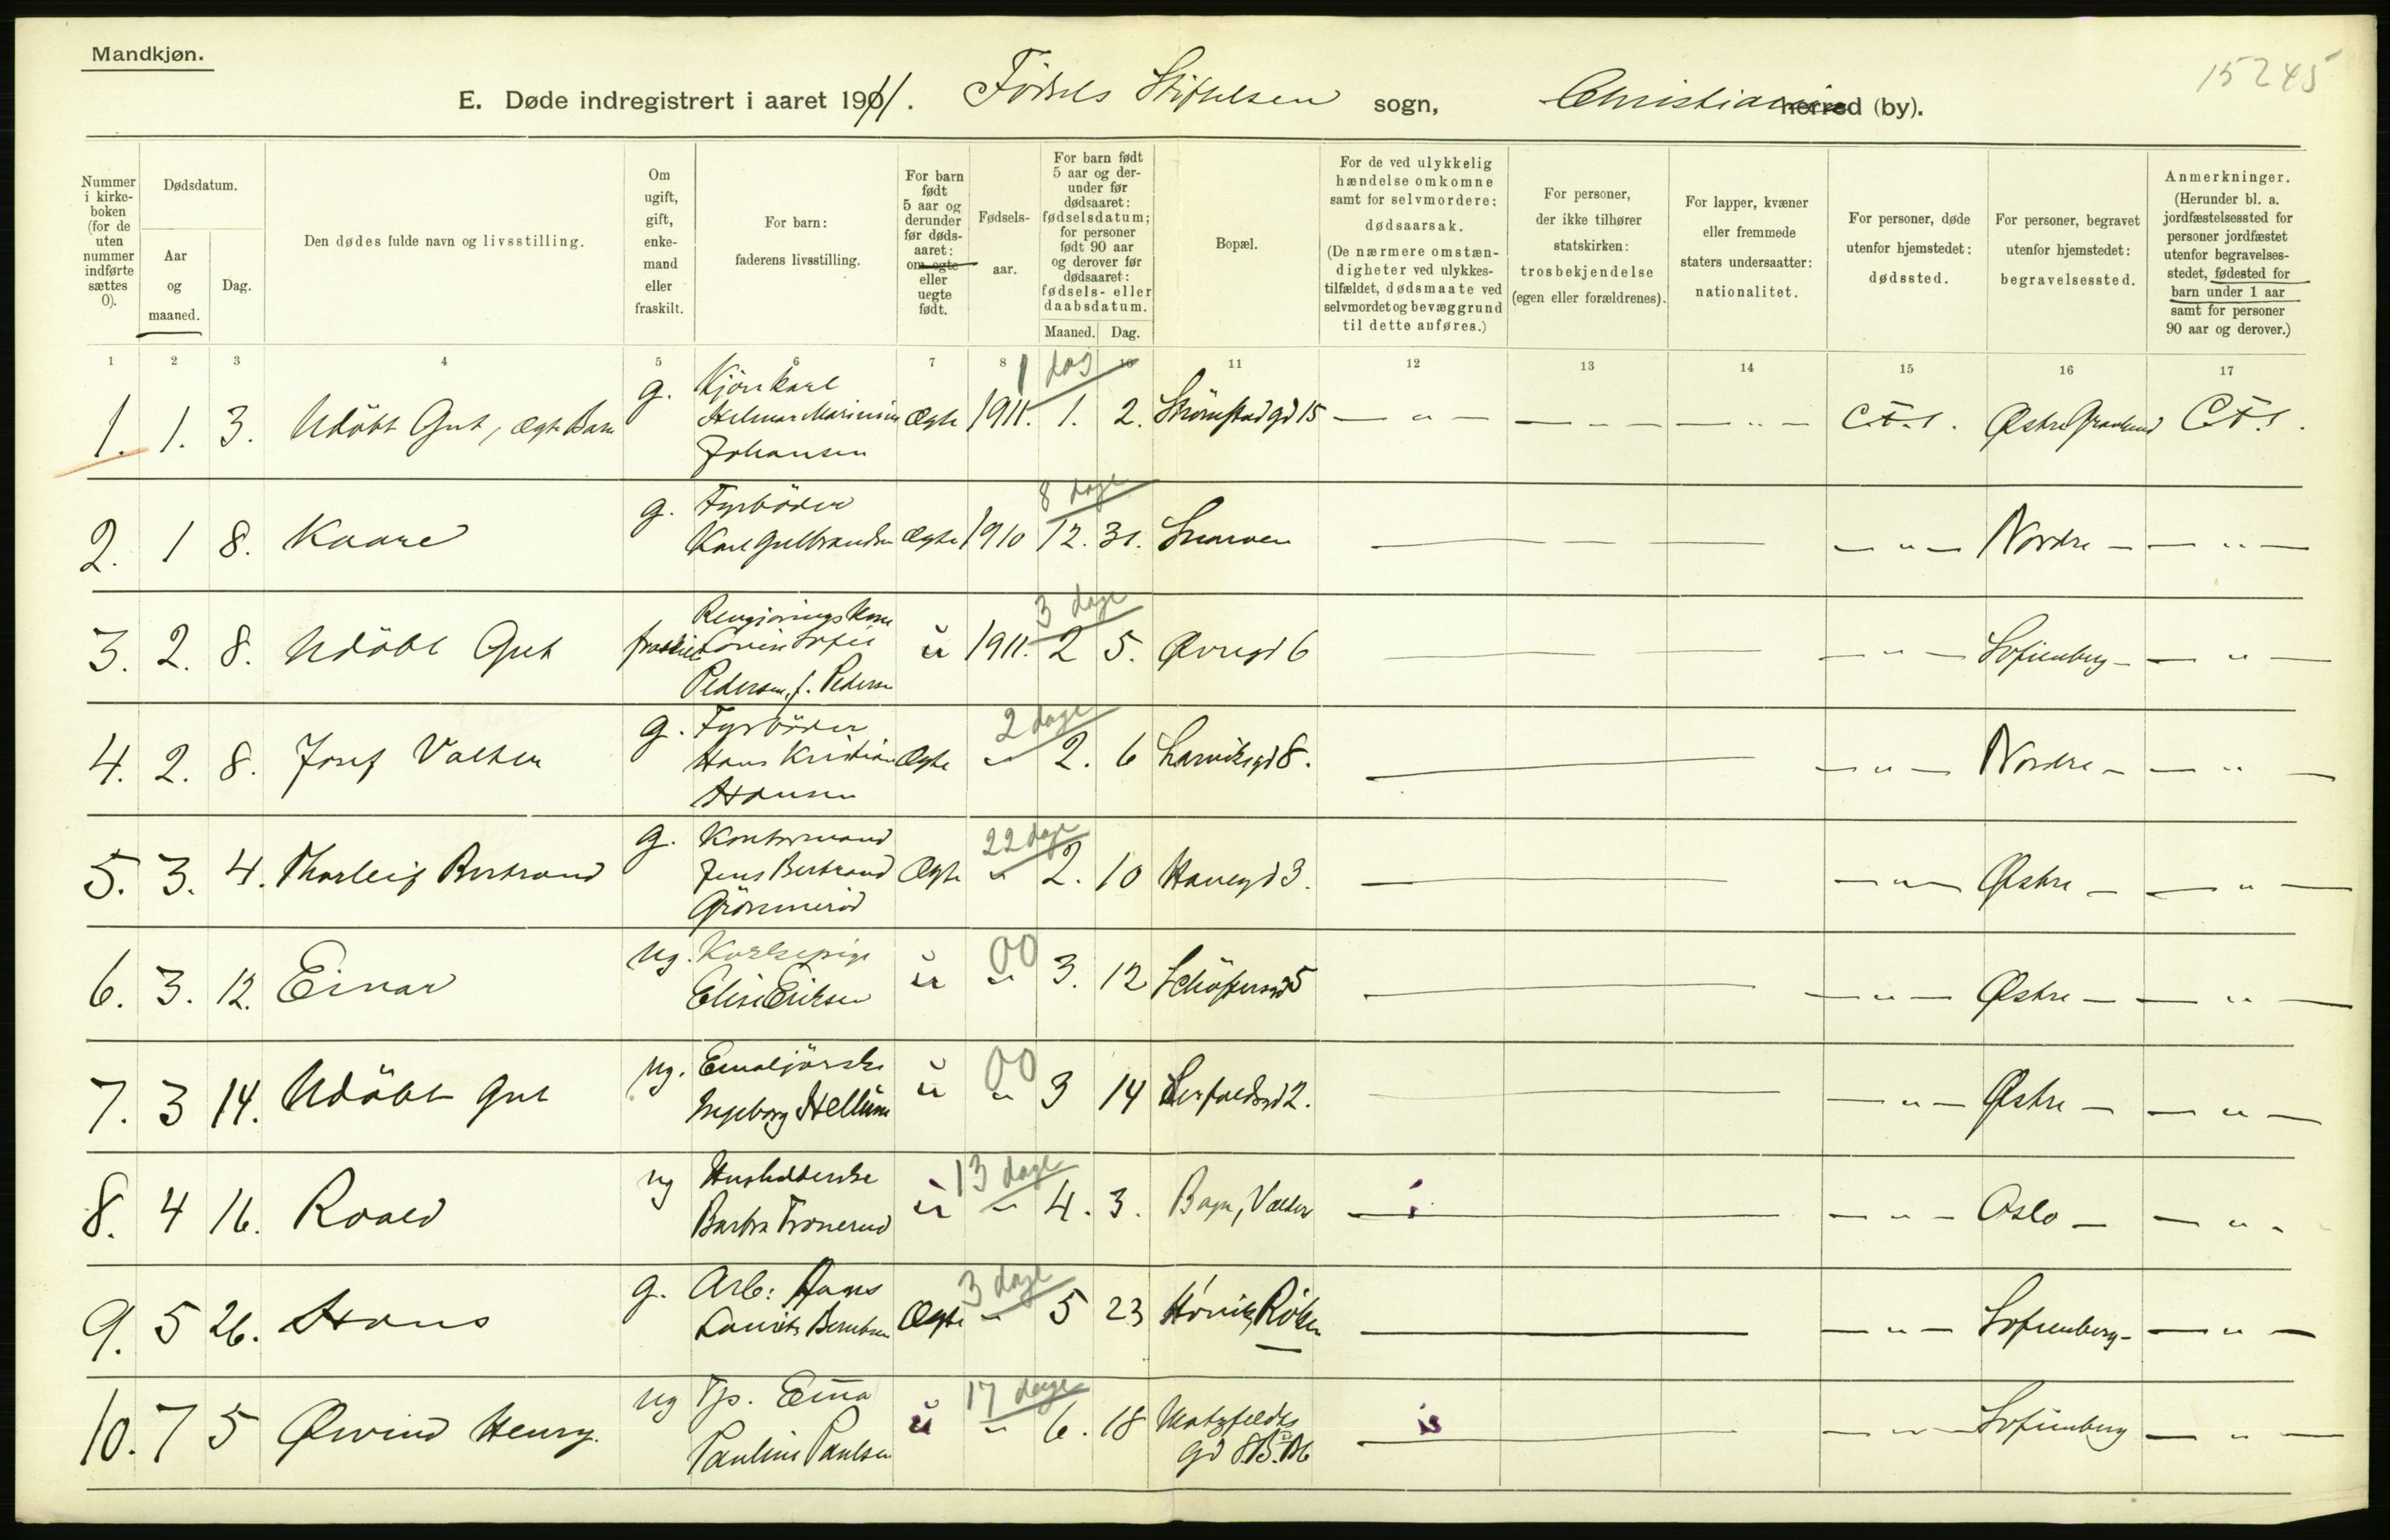 Mandkjøn.
15245
E. Døde indregistrert i aaret 1911. Fødsels Stiftelsen sogn, Christiania herred (by).
Nummer i kirke-boken (for de uten nummer indførte sættes 0).
Dødsdatum.
Aar og maaned.
Dag.
Den dødes fulde navn og livsstilling.
Om ugift, gift, enke-mand eller fraskilt.
For barn: faderens livsstilling.
For barn født 5 aar og derunder før døds-aaret: om egte eller uegte født.
Fødsels-aar.
For barn født 5 aar og der-under før dødsaaret: fødselsdatum; for personer født 90 aar og derover før dødsaaret: fødsels- eller daabsdatum.
Maaned. Dag.
Bopæl.
For de ved ulykkelig hændelse omkomne samt for selvmordere: dødsaarsak. (De nærmere omstæn-digheter ved ulykkes-tilfældet, dødsmaate ved selvmordet og bevæggrund til dette anføres.)
For personer, der ikke tilhører statskirken: trosbekjendelse (egen eller forældrenes).
For lapper, kvæner eller fremmede staters undersaatter: nationalitet.
For personer, døde utenfor hjemstedet: dødssted.
For personer, begravet utenfor hjemstedet: begravelsessted.
Anmerkninger. (Herunder bl. a. jordfæstelsessted for personer jordfæstet utenfor begravelses-stedet, fødested for barn under 1 aar samt for personer 90 aar og derover.)
1 2 3 4 5 6 7 8 10 11 12 13 14 15 16 17
1 dag
1. 1. 3. Udöbt Gut, Ægte Barn g. Kjörekarl Hilmar Marinius Johansen Ægte 1911. 1. 2. Strömstadgd 15 — " — — " — — " — Østre Gravlund
8 dage
2. 1 8. Kaare g. Fyrböder Karl Gulbrandsen Ægte 1910 12. 31. — " — Nordre — — " —
3 dage
3. 2. 8. Udöbt Gut fraskilt Rengjöringskone Lovise Sofie Pedersen, f. Pedersen u 1911. 2 5. Øvregd 6 — " — Sofienberg — — " —
2 dage
4. 2. 8. Josef Valter g. Fyrböder Hans Kristian Hansen Ægte " 2. 6 Larviksgd 8. — " — Nordre — — " —
22 dage
5. 3. 4. Thorleif Bertrand g. Kontormand Jens Bertrand Grönneröd Ægte " 2. 10 Havegd 3. — " — Østre — — " —
00
6. 3. 12. Einar ug. Kokkepige Elise Eriksen u " 3. 12 — " — Østre — — " —
00
7. 3 14. Udöbt Gut ug. Emaljörske Ingeborg Hellum u " 3 14 Lerfaldsgd 2. — " — Østre — — " —
13 dage
8. 4 16. Roald ug Husholderske Barbra Fronerud u " 4. 3. Bagn, Valders — " — Oslo — — " "
3 dage
9. 5 26. Hans g. Arb: Hans Lauritz Berntsen Ægte " 5 23 Hövik, Röken — " — Sofienberg — — " —
17 dage
10. 7 5 Øivind Henry. ug Tjp. Emma Pauline Paulsen u " 6. 18 — " — Sofienberg — " —